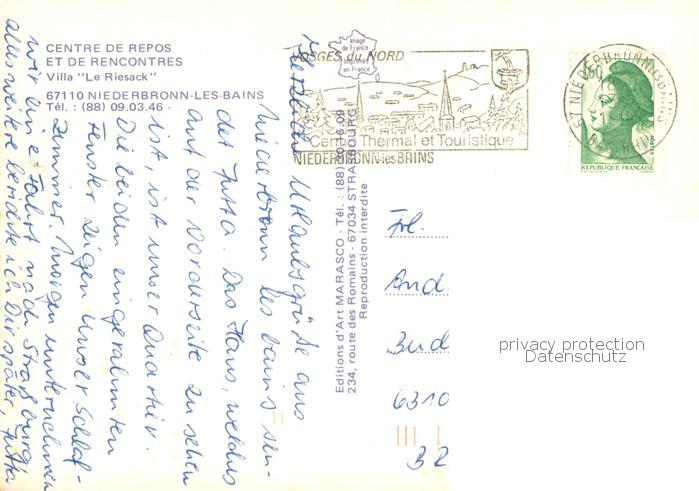 CENTRE DE REPOS
ET DE RENCONTRES
Villa "Le Riesack"
67110 NIEDERBRONN-LES-BAINS
Tél. : (88) 09.03.46 -
Herzliche Urlaubsgrüße aus
Niederbronn les bains sen-
det Jutta. Das Haus, welches
auf der Vorderseite zu sehen
ist, ist unser Quartier.
Die beiden eingerahmten
Fenster zeigen unser Schlaf-
zimmer. Morgen unternehmen
wir eine Fahrt nach Straßburg
alles weitere berichte ich Dir später, Jutta
Image
de France
Imprimée
en France
Editions d'Art MARASCO - Tél. : (88) 30.16.09
234, route des Romains - 67034 STRASBOURG
Reproduction interdite
VOSGES du NORD
Centre Thermal et Touristique
NIEDERBRONN les BAINS
67 NIEDERBRONN LES BAINS
1,60
REPUBLIQUE FRANÇAISE
Frl.
And
Bud
6310
privacy protection
Datenschutz